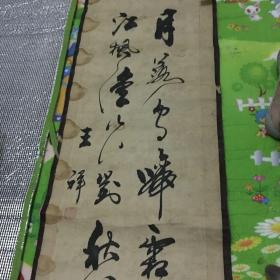 月落烏啼霜
江楓漁火對
王祥